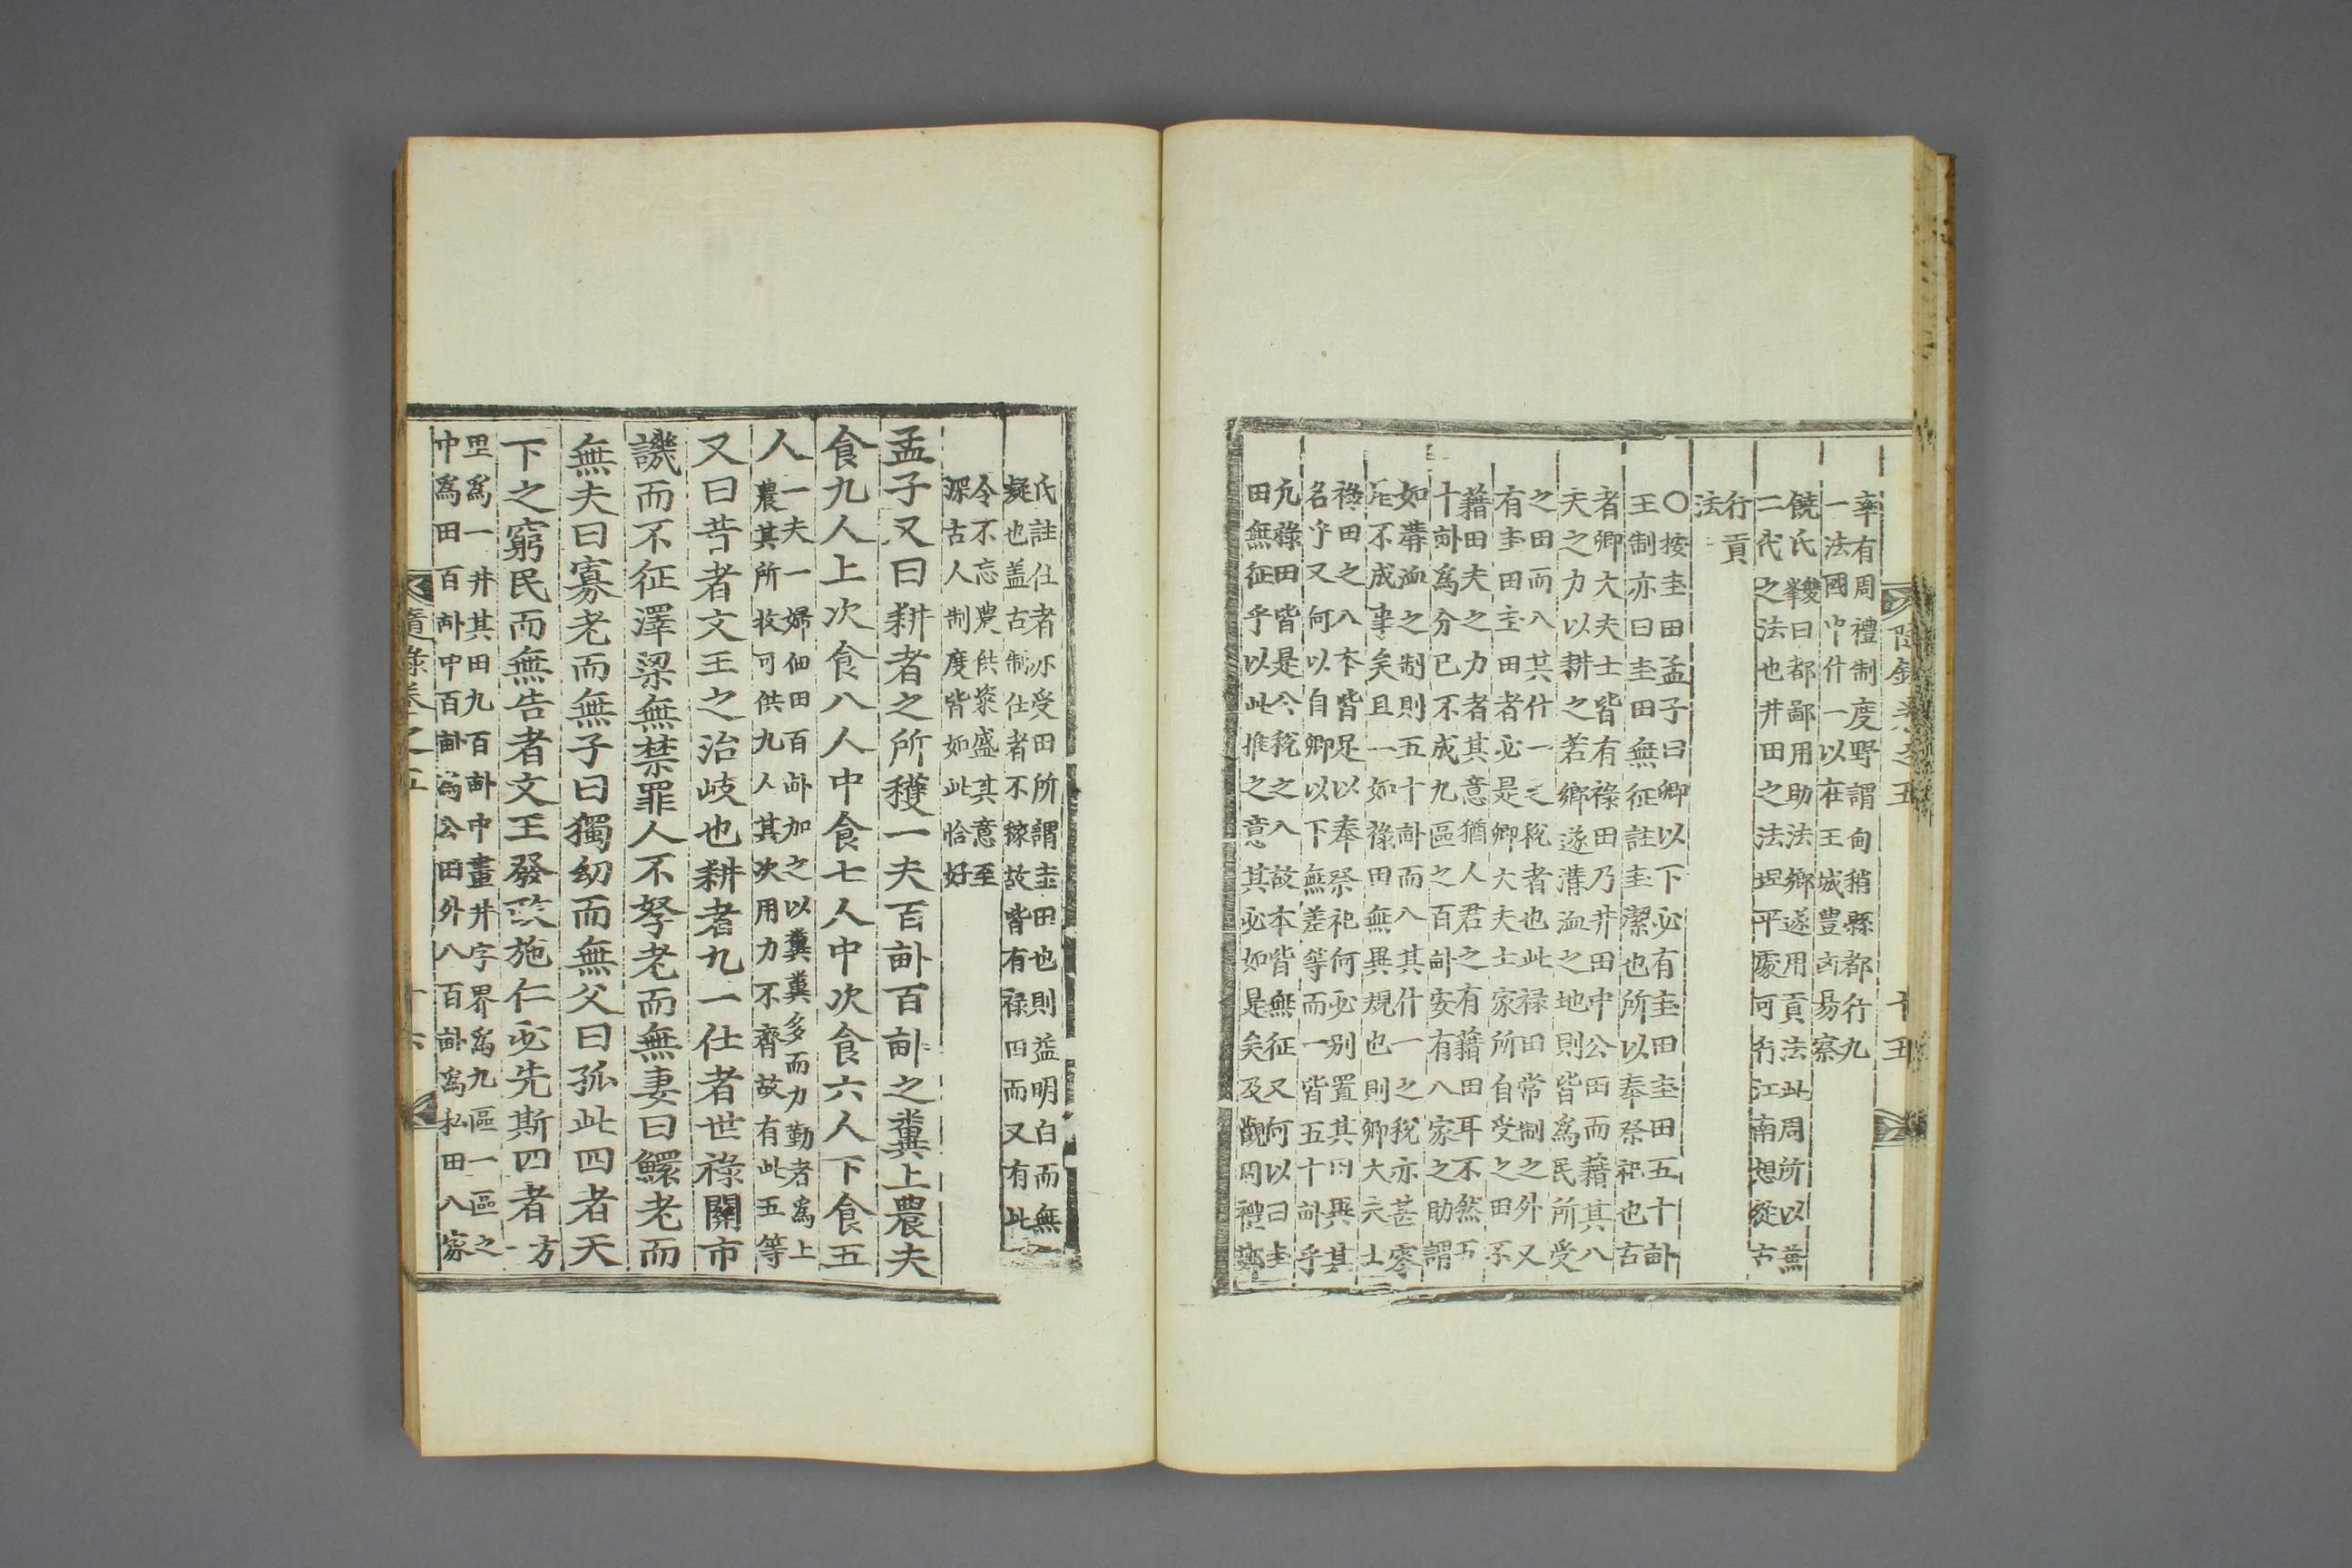 隨錄卷之五
十五
率有周禮制度野謂甸稍縣都行九
一法國中什一以在王城豊凶易察
饒氏雙峯曰都鄙用助法鄉遂用貢法此周所以兼
二代之法也井田之法坦平處可行江南想從古
行貢
法
〇按圭田孟子曰卿以下必有圭田圭田五十畝
王制亦曰圭田無征註圭潔也所以奉祭祀也古
者卿大夫士皆有祿田乃井田中公田而藉其八
夫之力以耕之若鄉遂溝洫之地則皆爲民所受
之田而入其什一之稅者也此祿田常制之外又
有圭田圭田者必是卿大夫士家所自受之田不
藉田夫之力者其意猶人君之有藉田耳不然五
十畝爲分已不成九區之百畝安有八家之助謂
如溝洫之制則五十畝而入其什一之稅亦甚零
尾不成事矣且一如祿田無異規也則卿大夫士
祿田之入本皆足以奉祭祀何必别置其田異其
名乎又何以自卿以下無差等而一皆五十畝乎
凡祿田皆是今稅之入故本皆無征又何以曰圭
田無征乎以此推之意其必如是矣及觀周禮鄭
氏註仕者亦受田所謂圭田也則益明白而無
疑也盖古制仕者不稼故皆有祿田而又有此
令不忘農供粢盛其意至
深古人制度皆如此恰好
孟子又曰耕者之所穫一夫百畝百畝之糞上農夫
食九人上次食八人中食七人中次食六人下食五
人
一夫一婦佃田百畝加之以糞糞多而力勤者爲上
農其所收可供九人其次用力不齊故有此五等
又曰昔者文王之治岐也耕者九一仕者世祿關市
譏而不征澤梁無禁罪人不孥老而無妻曰鰥老而
無夫曰寡老而無子曰獨幼而無父曰孤此四者天
下之窮民而無告者文王發政施仁必先斯四者
方
里爲一井其田九百畝中畫井字界爲九區一區之
中爲田百畝中百畝爲公田外八百畝爲私田八家
隨錄卷之五
十六